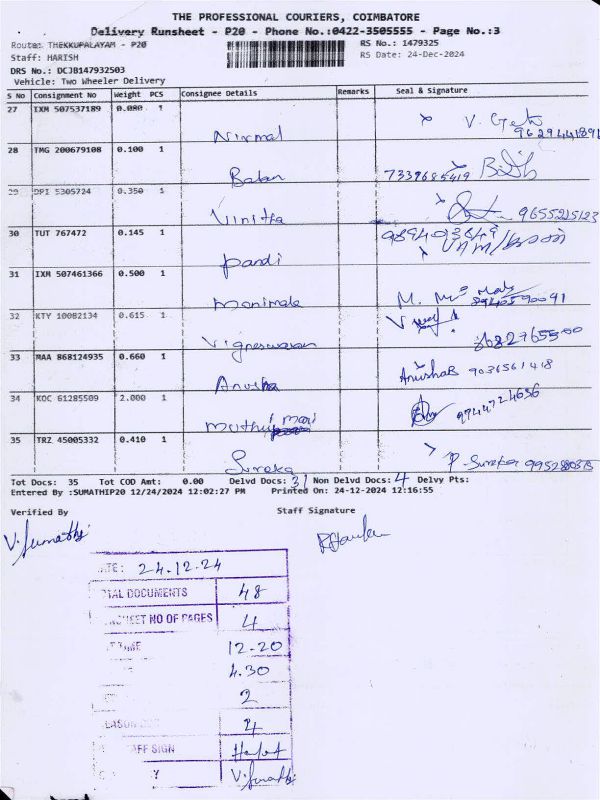 THE PROFESSIONAL COURIERS, COIMBATORE
Delivery Runsheet - P20 - Phone No.:0422-3505555 - Page No.:3
Route: THEKKUPALAYAM - P20
RS No.: 1479325
Staff: HARISH
RS Date: 24-Dec-2024
DRS No.: DCJB147932503
Vehicle: Two Wheeler Delivery
S No Consignment No Weight PCS Consignee Details Remarks Seal & Signature
27 IXM 507537189 0.080 1 Nirmal
28 TMG 200679108 0.100 1 Balan 7339685419
29 DPI 5305724 0.350 1 Vinitha 9655225123
30 TUT 767472 0.145 1 pandi
31 IXM 507461366 0.500 1 Monimala
32 KTY 10082134 0.615 1 Vigneswaran
33 MAA 868124935 0.660 1 Anusha AnushaB 9036561418
34 KOC 61285509 2.000 1 Muthu mari 9744724656
35 TRZ 45005332 0.410 1 Sureka P. Sureka
Tot Docs: 35 Tot COD Amt: 0.00 Delvd Docs: 31 Non Delvd Docs: 4 Delvy Pts:
Entered By :SUMATHIP20 12/24/2024 12:02:27 PM Printed On: 24-12-2024 12:16:55
Verified By Staff Signature
V. Sumathi
24.12.24
DOCUMENTS 48
NO OF PAGES 4
12-20
4.30
2
4
SIGN
V. Sumathi